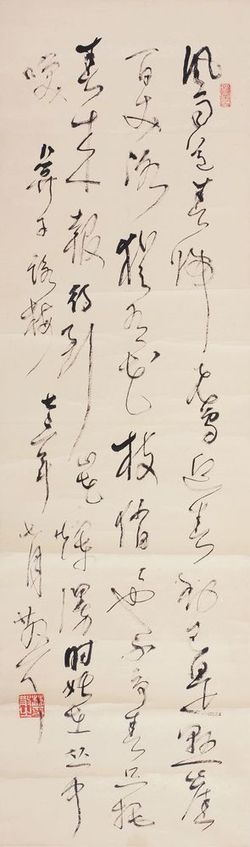 風雨送春歸飛雪迎春到已是懸崖
百丈冰猶有花枝俏俏也不争春只把
春来報待到山花爛漫时她在丛中
咲 卜算子詠梅 年七月